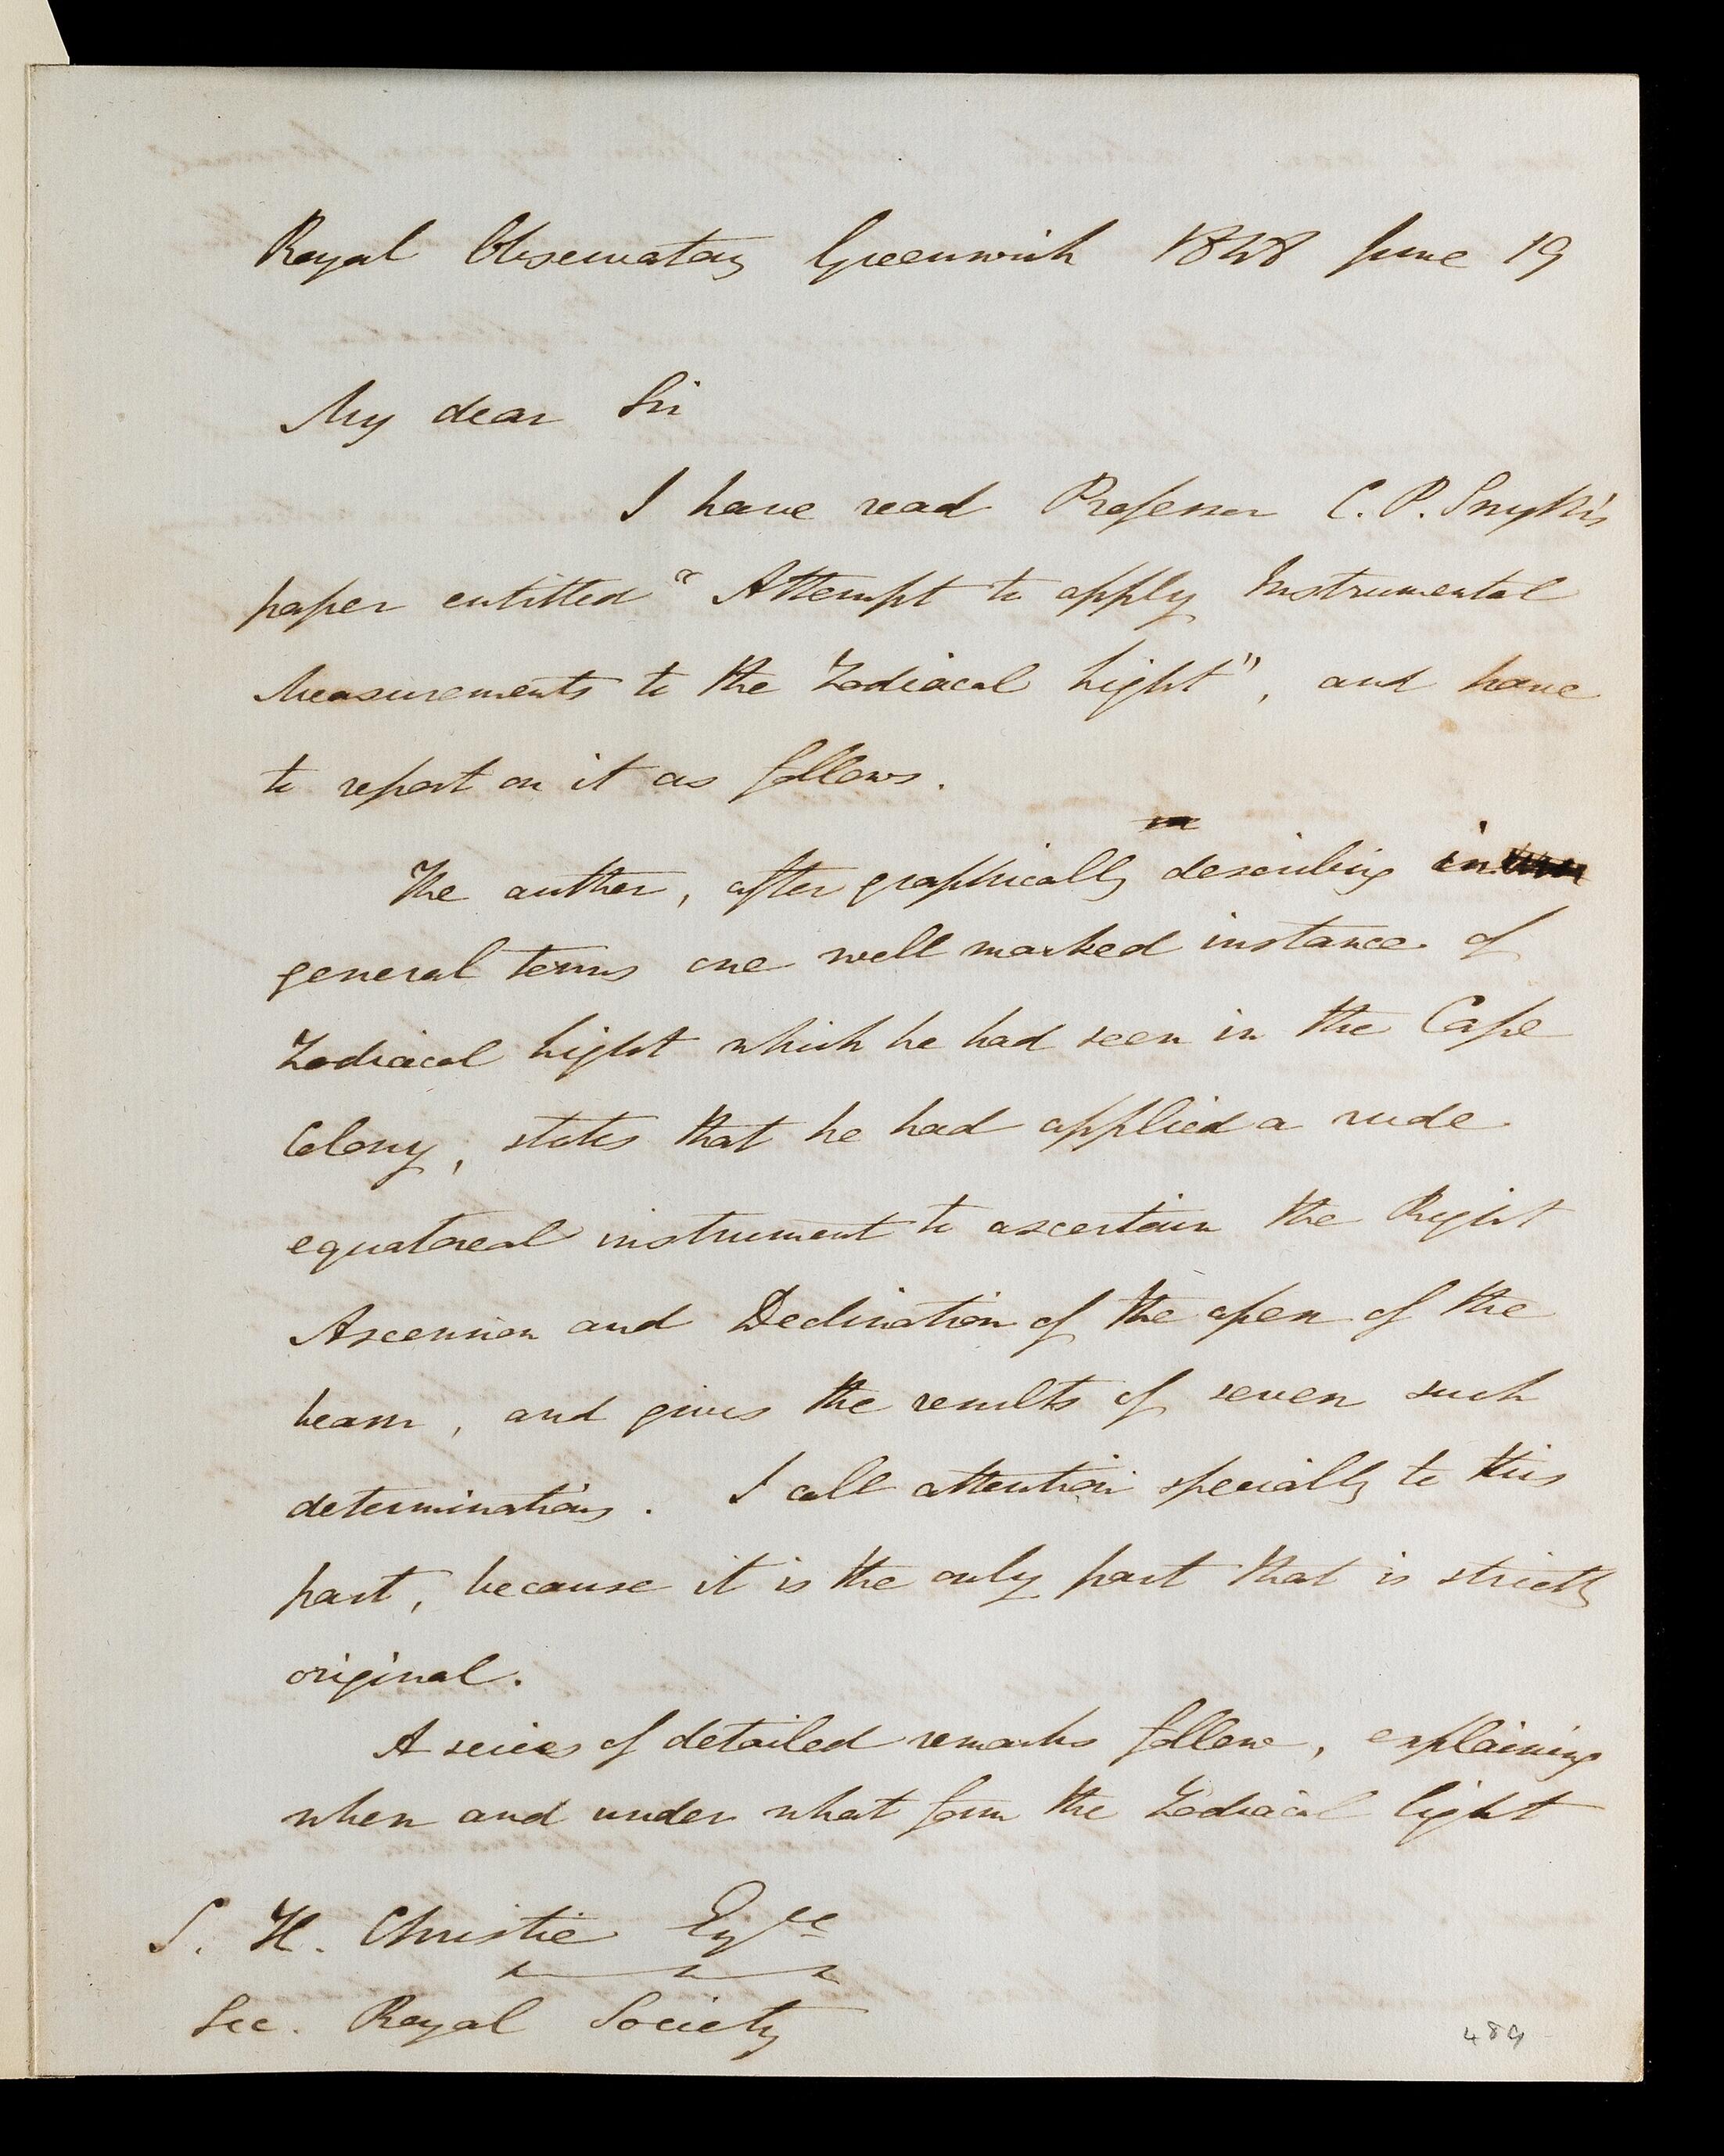 Royal Observatory Greenwich 1848 June 19
My dear Sir
I have read Professor C. P. Smyth's
paper entitled "Attempt to apply Instrumental
Measurements to the Zodiacal Light", and have
to report on it as follows.
The author, after graphically describing in
general terms one well marked instance of
Zodiacal Light which he had seen in the Cape
Colony, states that he had applied a rude
equatoreal instrument to ascertain the Right
Ascension and Declination of the apex of the
beam, and gives the results of seven such
determinations. I call attention specially to this
part, because it is the only part that is strictly
original.
A series of detailed remarks follow, explaining
when and under what form the Zodiacal light
S. H. Christie Esqre
Sec. Royal Society
489